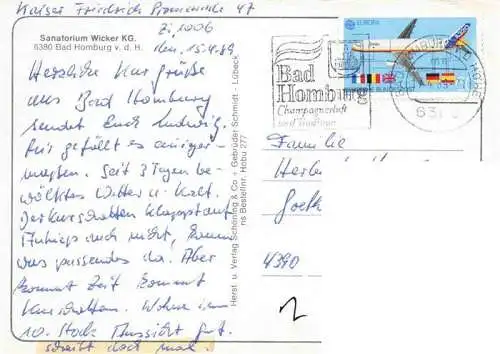 Kaiser Friedrich Promenade 47
Zi. 1006
Sanatorium Wicker KG.
6380 Bad Homburg v. d. H.
den. 15.4.89
Herzliche Kur grüße
aus Bad Homburg
sendet Euch Ludwig.
Mir gefällt es einiger-
maßen. Seit 3 Tagen be-
wölktes Wetter u. Kalt.
Der Kurschatten klappt am
Anfangs auch nicht,
was passendes da. Aber
kommt Zeit kommt
Kurschatten. Wohne im
10. Stock Aussicht gut.
schreibt doch mal.
Herst. u. Verlag Schöning & Co + Gebrüder Schmidt - Lübeck
ns Bestellnr. Hobu 277
EUROPA
Bad
Homburg
Champagnerluft
und Tradition
DEUTSCHE BUNDESPOST
HOMBURG
Familie
Her
Goet
4390